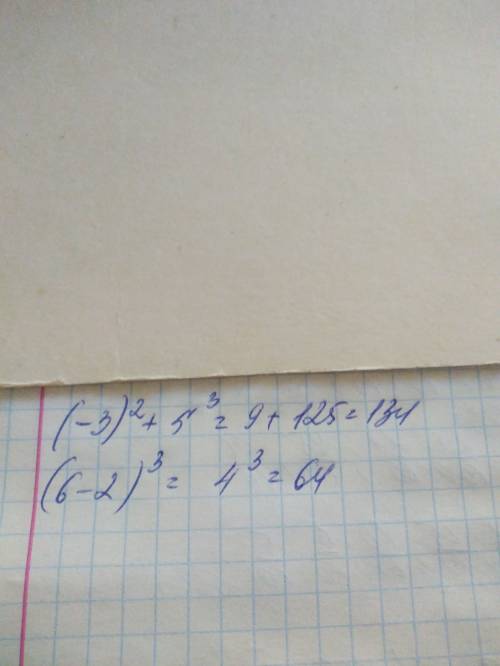 (-3)² + 5³ = 9 + 125 = 134
(6-2)³ = 4³ = 64